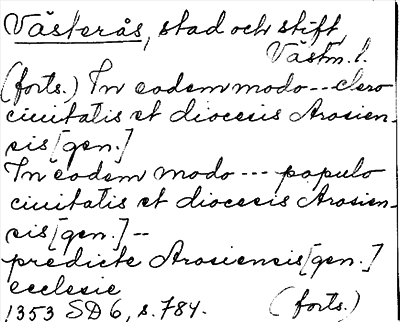 Västerås, stad och stift,
Västm. l.
(forts.) In eodem modo --- clero
ciuitatis et diocesis Arosien-
sis [gen.]
In eodem modo --- populo
ciuitatis et diocesis Arosien-
sis [gen.] --
predicte Arosiensis [gen.]
ecclesie
1353 SD 6, s. 784. (forts.)